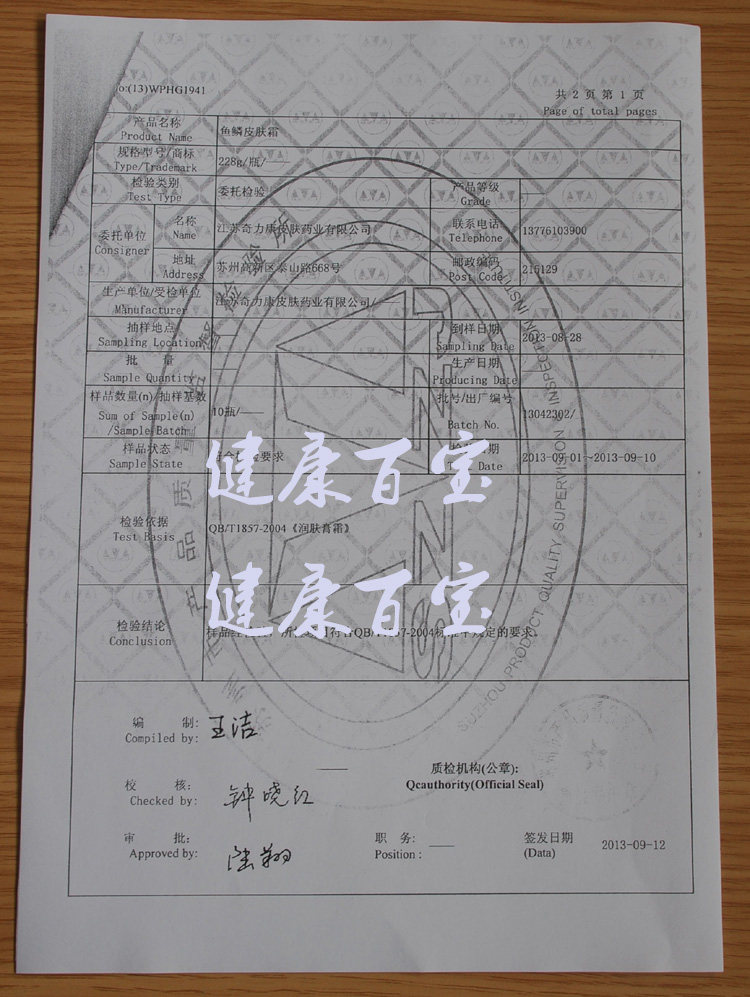 o:(13)WPHG1941
共 2 页 第 1 页
Page of total pages
产品名称
Product Name
鱼鳞皮肤霜
规格型号/商标
Type/Trademark
228g/瓶/——
检验类别
Test Type
委托检验
产品等级
Grade
委托单位
Consigner
名称
Name
江苏奇力康皮肤药业有限公司
联系电话
Telephone
13776103900
地址
Address
苏州高新区泰山路668号
邮政编码
Post Code
215129
生产单位/受检单位
Manufacturer
江苏奇力康皮肤药业有限公司/
抽样地点
Sampling Location
到样日期
Sampling Date
2013-08-28
批 量
Sample Quantity
生产日期
Producing Date
样品数量(n)/抽样基数
Sum of Sample(n)
/Sample Batch
10瓶/——
批号/出厂编号
Batch No.
13042302/
样品状态
Sample State
要求
日期
Date
2013-09-01~2013-09-10
健康百宝
检验依据
Test Basis
QB/T1857-2004《润肤膏霜》
健康百宝
检验结论
Conclusion
样品经 所 符合QB/T1857-2004标准中规定的要求。
SUZHOU PRODUCT QUALITY SUPERVISION INSPECTION INSTITU
编 制:
Compiled by:
王洁
质检机构(公章):
Qcauthority(Official Seal)
校 核:
Checked by:
钟晓红
审 批:
Approved by:
陆翔
职 务:
Position:
——
签发日期
(Data)
2013-09-12